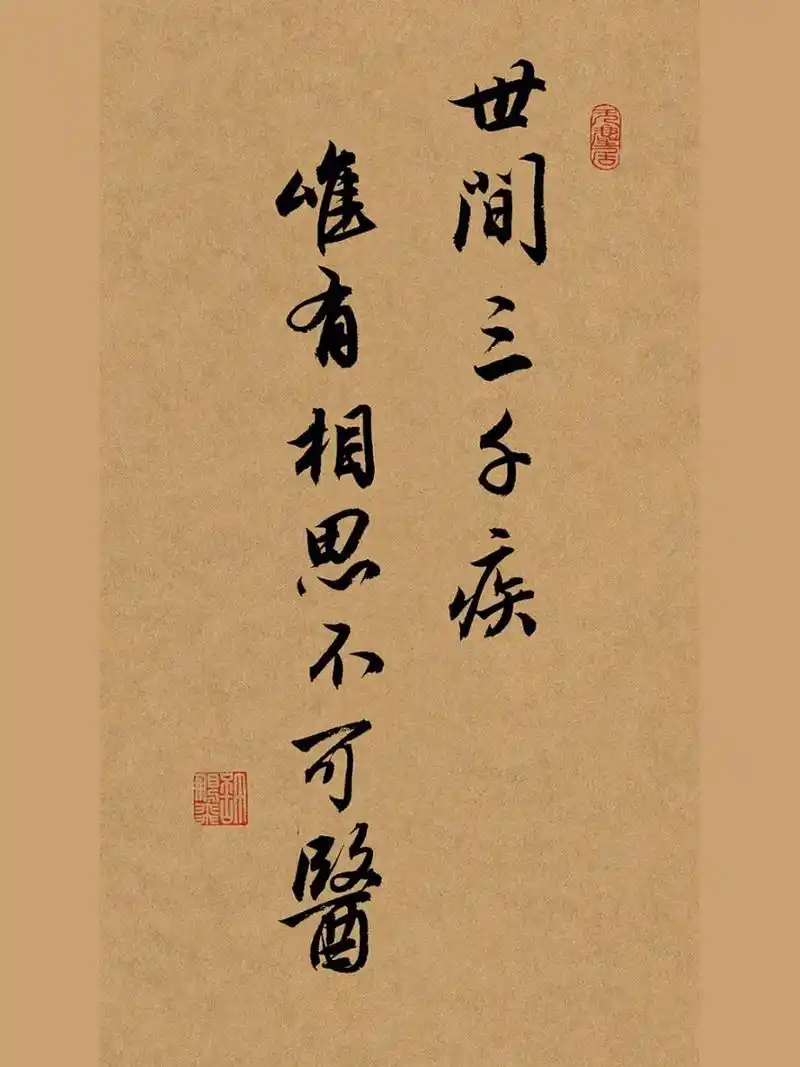 世間三千疾
唯有相思不可醫